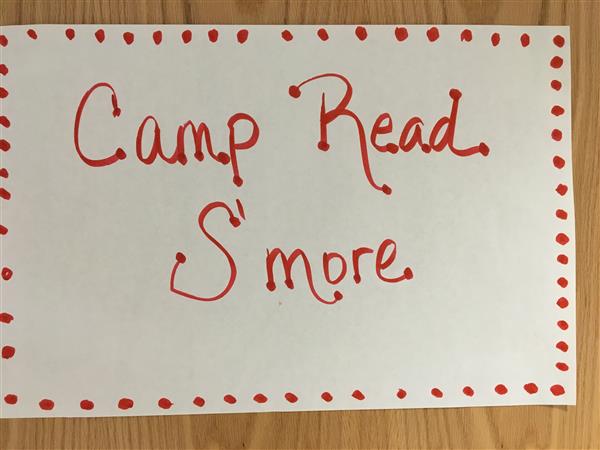 Camp Read
S'more